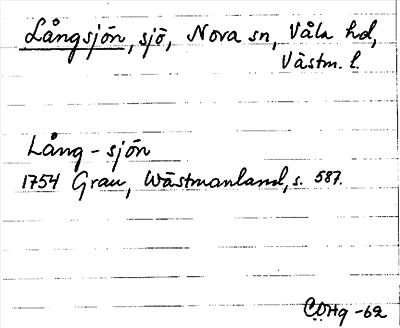 Långsjön, sjö, Nora sn, Våla hd,
Västm. l.
Lång-sjön
1754 Grau, Wästmanland, s. 587.
COHg -62